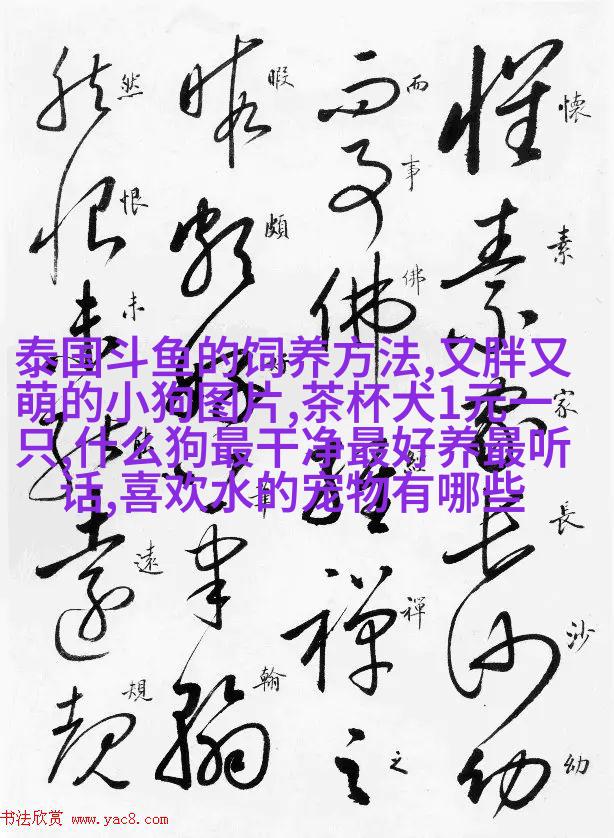 懷素家長沙幼
而事佛經禪之
暇頗好筆翰
然恨未能遠規
泰国斗鱼的饲养方法,又胖又
萌的小狗图片,茶杯犬1元一
只,什么狗最干净最好养最听
话,喜欢水的宠物有哪些
书法欣赏 www.yac8.com